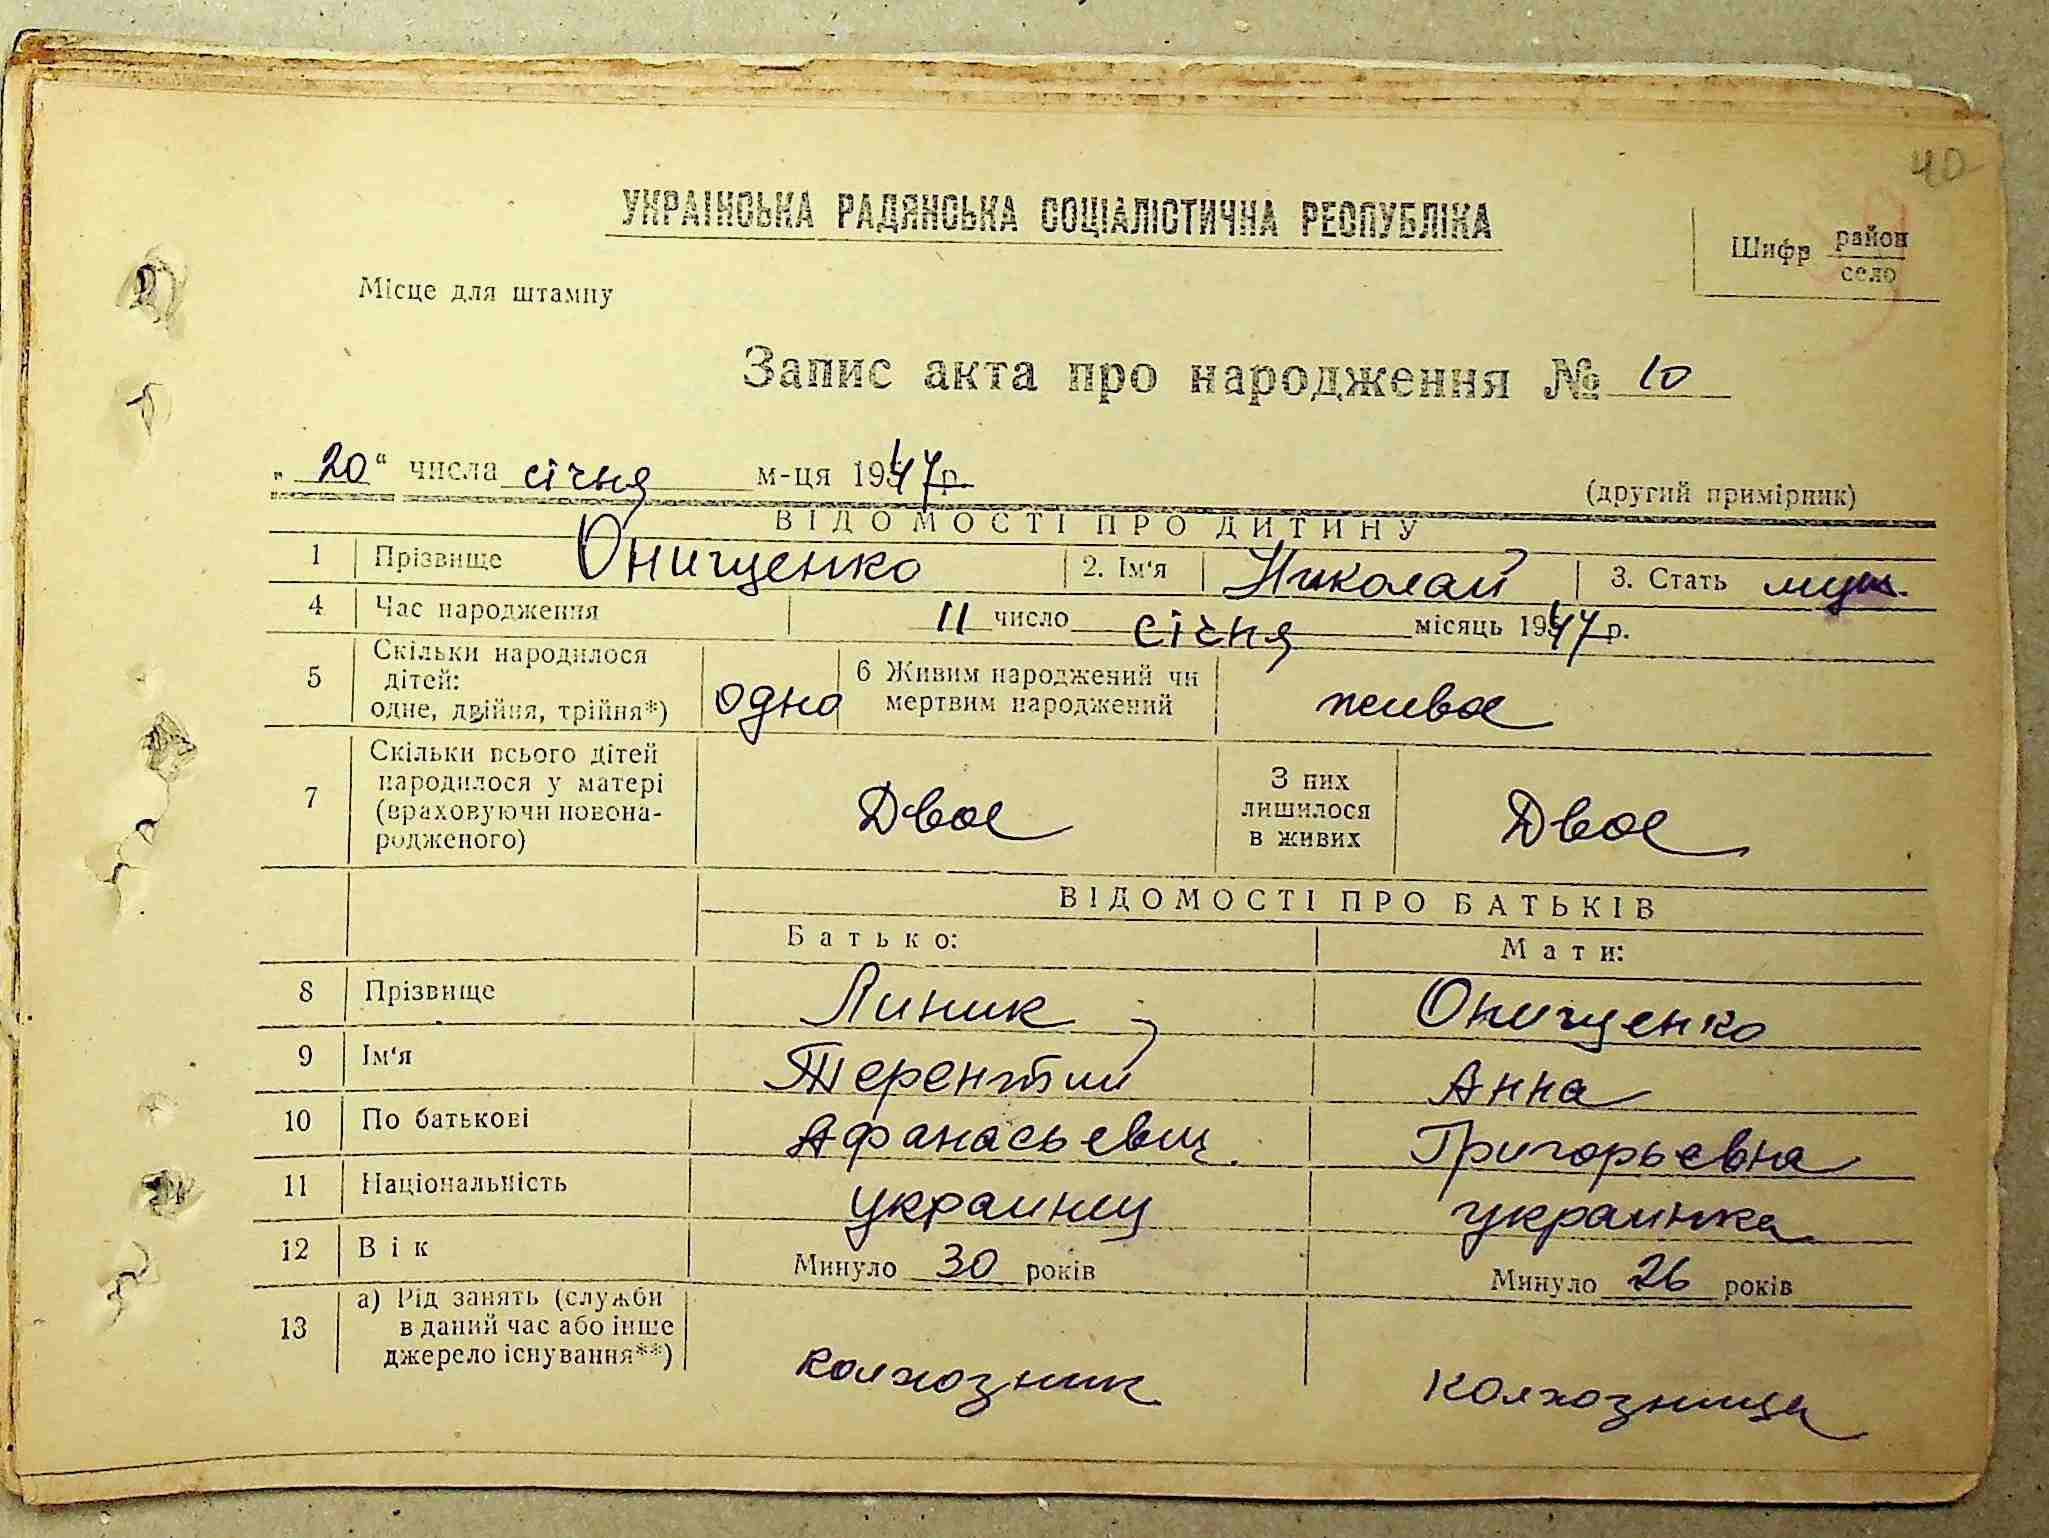 40
УКРАЇНСЬКА РАДЯНСЬКА СОЦІАЛІСТИЧНА РЕСПУБЛІКА
Шифр район
село
Місце для штампу
Запис акта про народження № 10
„ 20 “ числа січня м-ця 1947р.
(другий примірник)
ВІДОМОСТІ ПРО ДИТИНУ
1 Прізвище Онищенко 2. Ім'я Николай 3. Стать муж.
4 Час народження 11 число січня місяць 1947р.
5 Скільки народилося дітей: одне, двійня, трійня*) одно 6 Живим народжений чи мертвим народжений живое
7 Скільки всього дітей народилося у матері (враховуючи новона-родженого) Двое З них лишилося в живих Двое
ВІДОМОСТІ ПРО БАТЬКІВ
Батько: Мати:
8 Прізвище Линик Онищенко
9 Ім'я Терентий Анна
10 По батькові Афанасьевич Григорьевна
11 Національність украинец украинка
12 Вік Минуло 30 років Минуло 26 років
13 а) Рід занять (служби в даний час або інше джерело існування**) колхозник колхозница